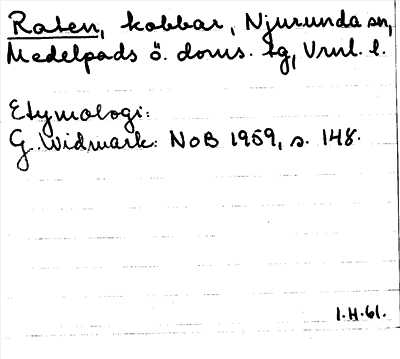 Raten, kobbar, Njurunda sn,
Medelpads ö. doms. tg, Vrnl. l.
Etymologi:
G. Widmark: NoB 1959, s. 148.
1.H.61.